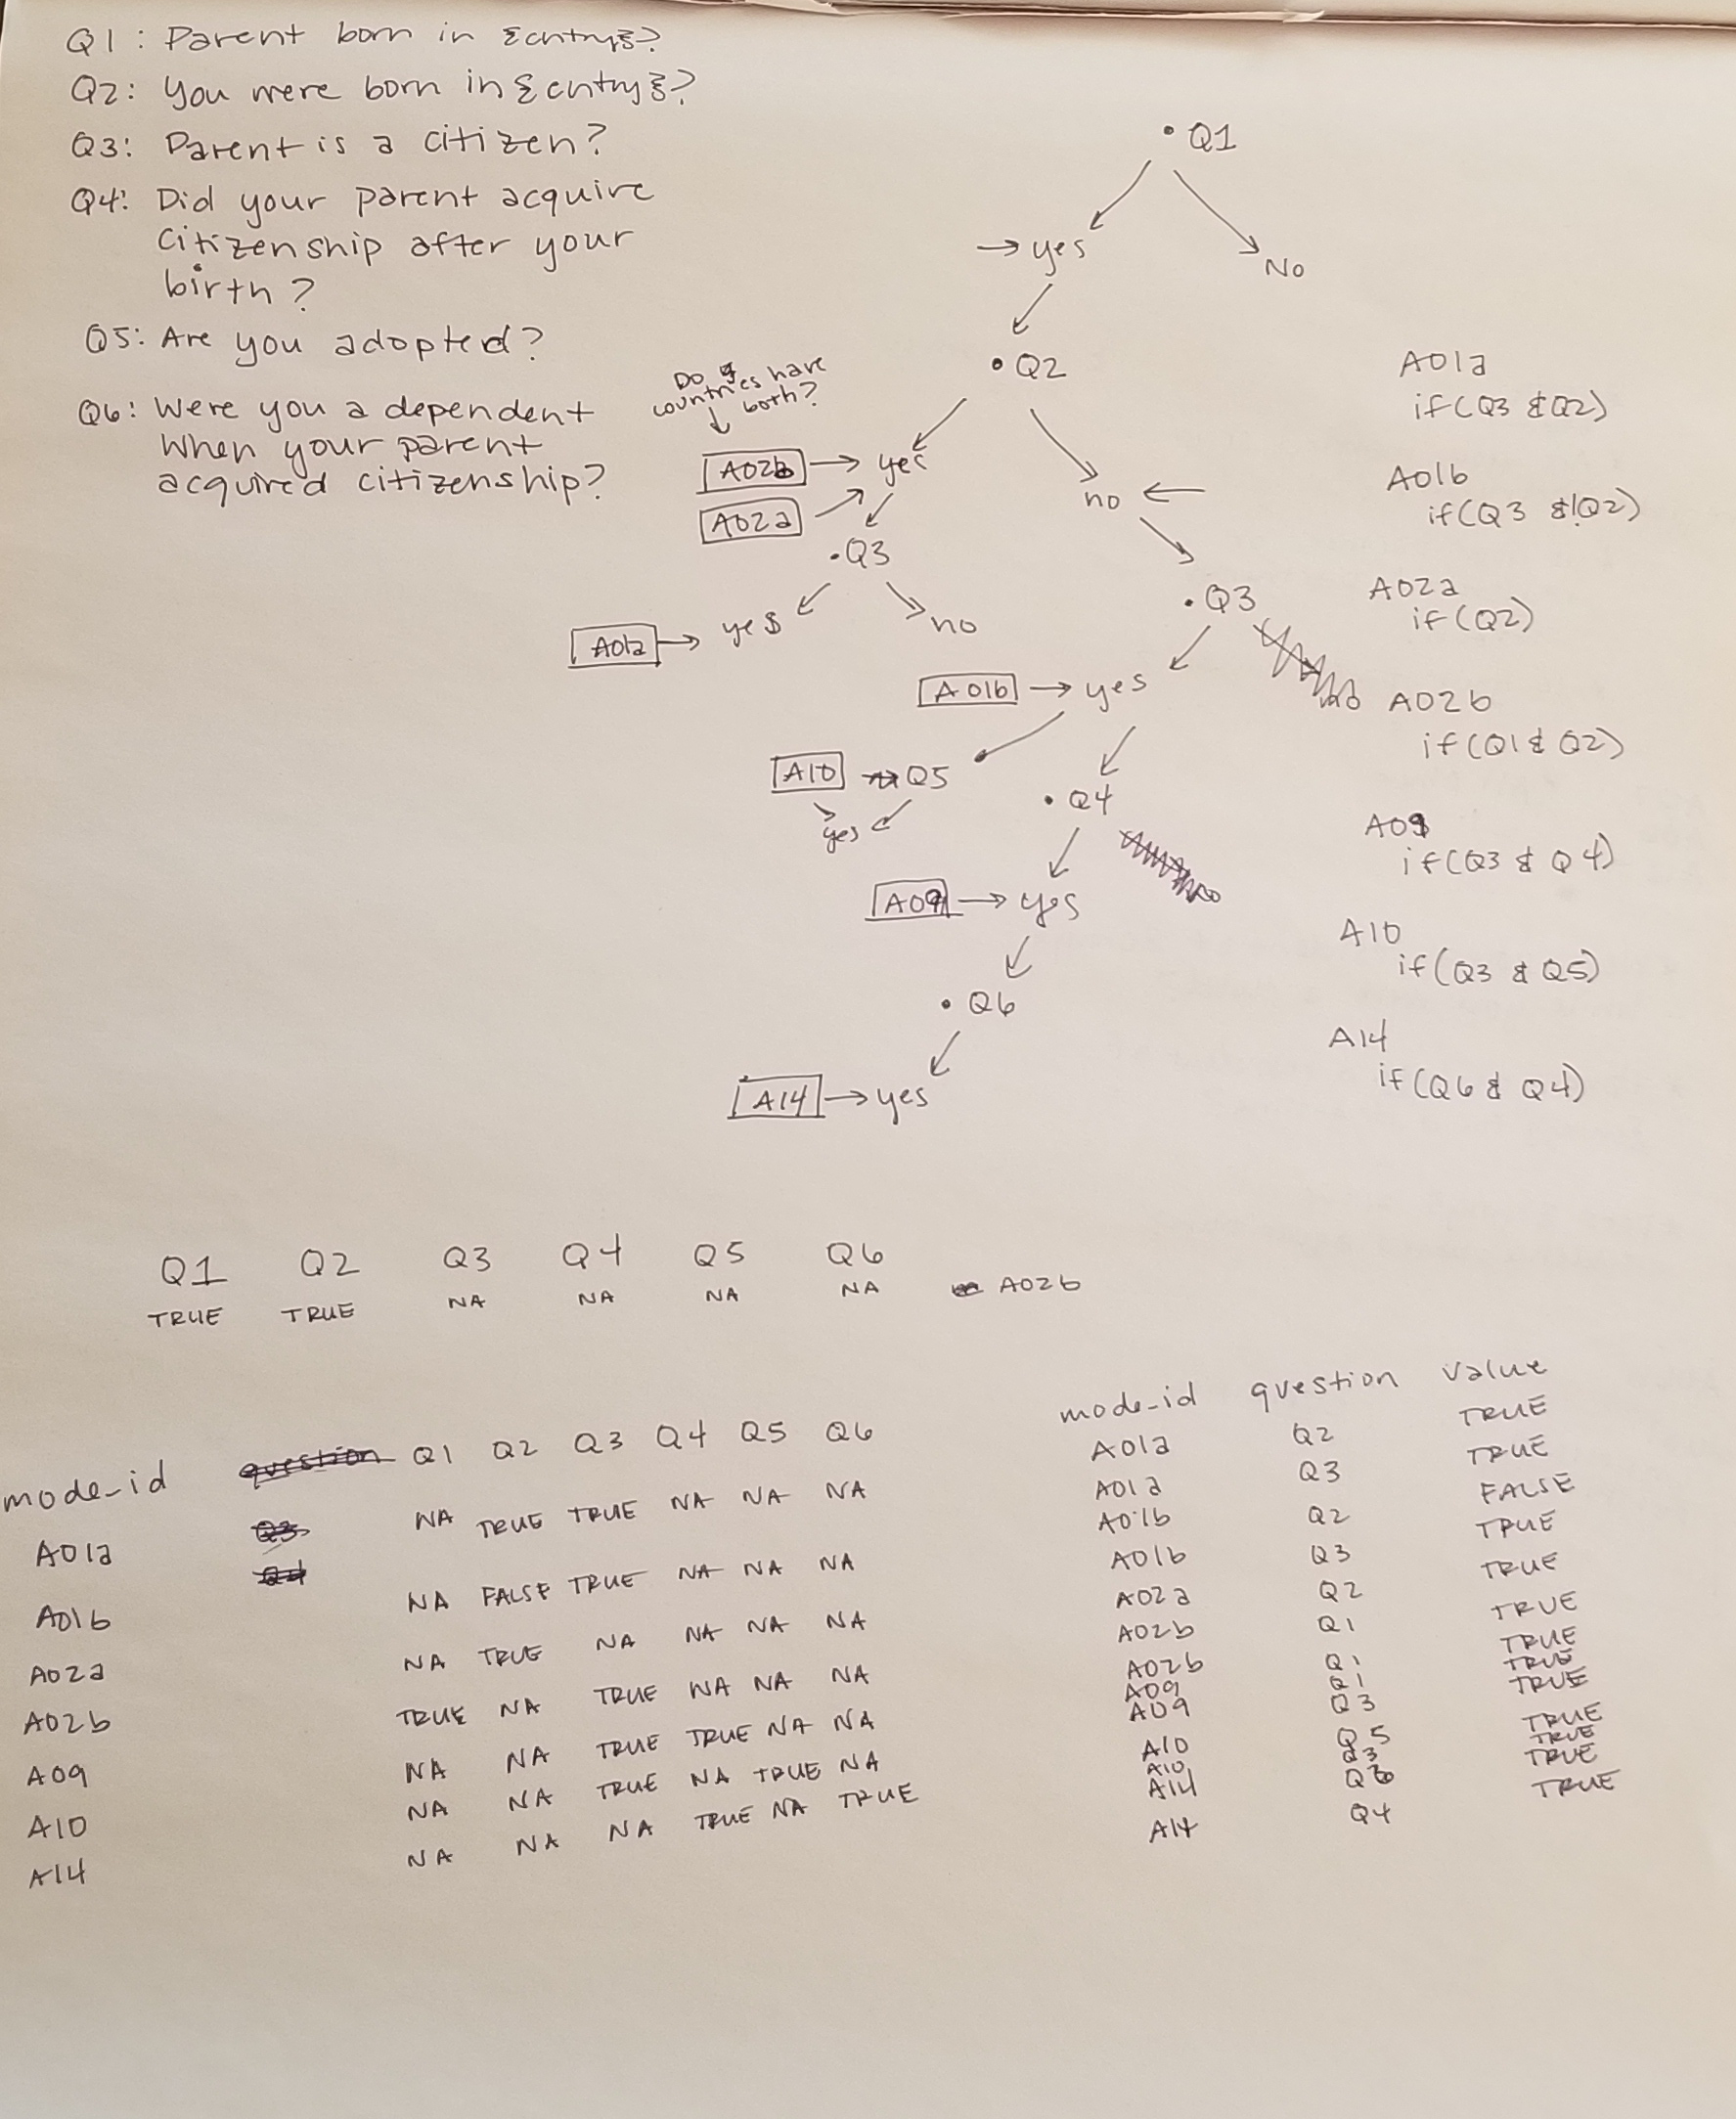 Q1: Parent born in {cntry}?
Q2: You were born in {cntry}?
Q3: Parent is a citizen?
Q4: Did your parent acquire
citizenship after your
birth?
Q5: Are you adopted?
Q6: Were you a dependent
when your parent
acquired citizenship?
• Q1
→ yes
No
• Q2
Do countries have
both?
A02b → yes
A02a
no ←
• Q3
A01a → yes
no
• Q3
A01b → yes
A10 Q5
yes
• Q4
A09 → yes
• Q6
A14 → yes
A01a
if(Q3 & Q2)
A01b
if(Q3 & !Q2)
A02a
if(Q2)
A02b
if(Q1 & Q2)
A09
if(Q3 & Q4)
A10
if(Q3 & Q5)
A14
if(Q6 & Q4)
Q1 Q2 Q3 Q4 Q5 Q6
TRUE TRUE NA NA NA NA A02b
mode_id question Q1 Q2 Q3 Q4 Q5 Q6
Q3
Q4
A01a NA TRUE TRUE NA NA NA
A01b NA FALSE TRUE NA NA NA
A02a NA TRUE NA NA NA NA
A02b TRUE NA TRUE NA NA NA
A09 NA NA TRUE TRUE NA NA
A10 NA NA TRUE NA TRUE NA
A14 NA NA NA TRUE NA TRUE
mode_id question value
A01a Q2 TRUE
A01a Q3 TRUE
A01b Q2 FALSE
A01b Q3 TRUE
A02a Q2 TRUE
A02b Q1 TRUE
A02b Q1 TRUE
A09 Q1 TRUE
A09 Q3 TRUE
A10 Q5 TRUE
A10 Q3 TRUE
A14 Q6 TRUE
A14 Q4 TRUE